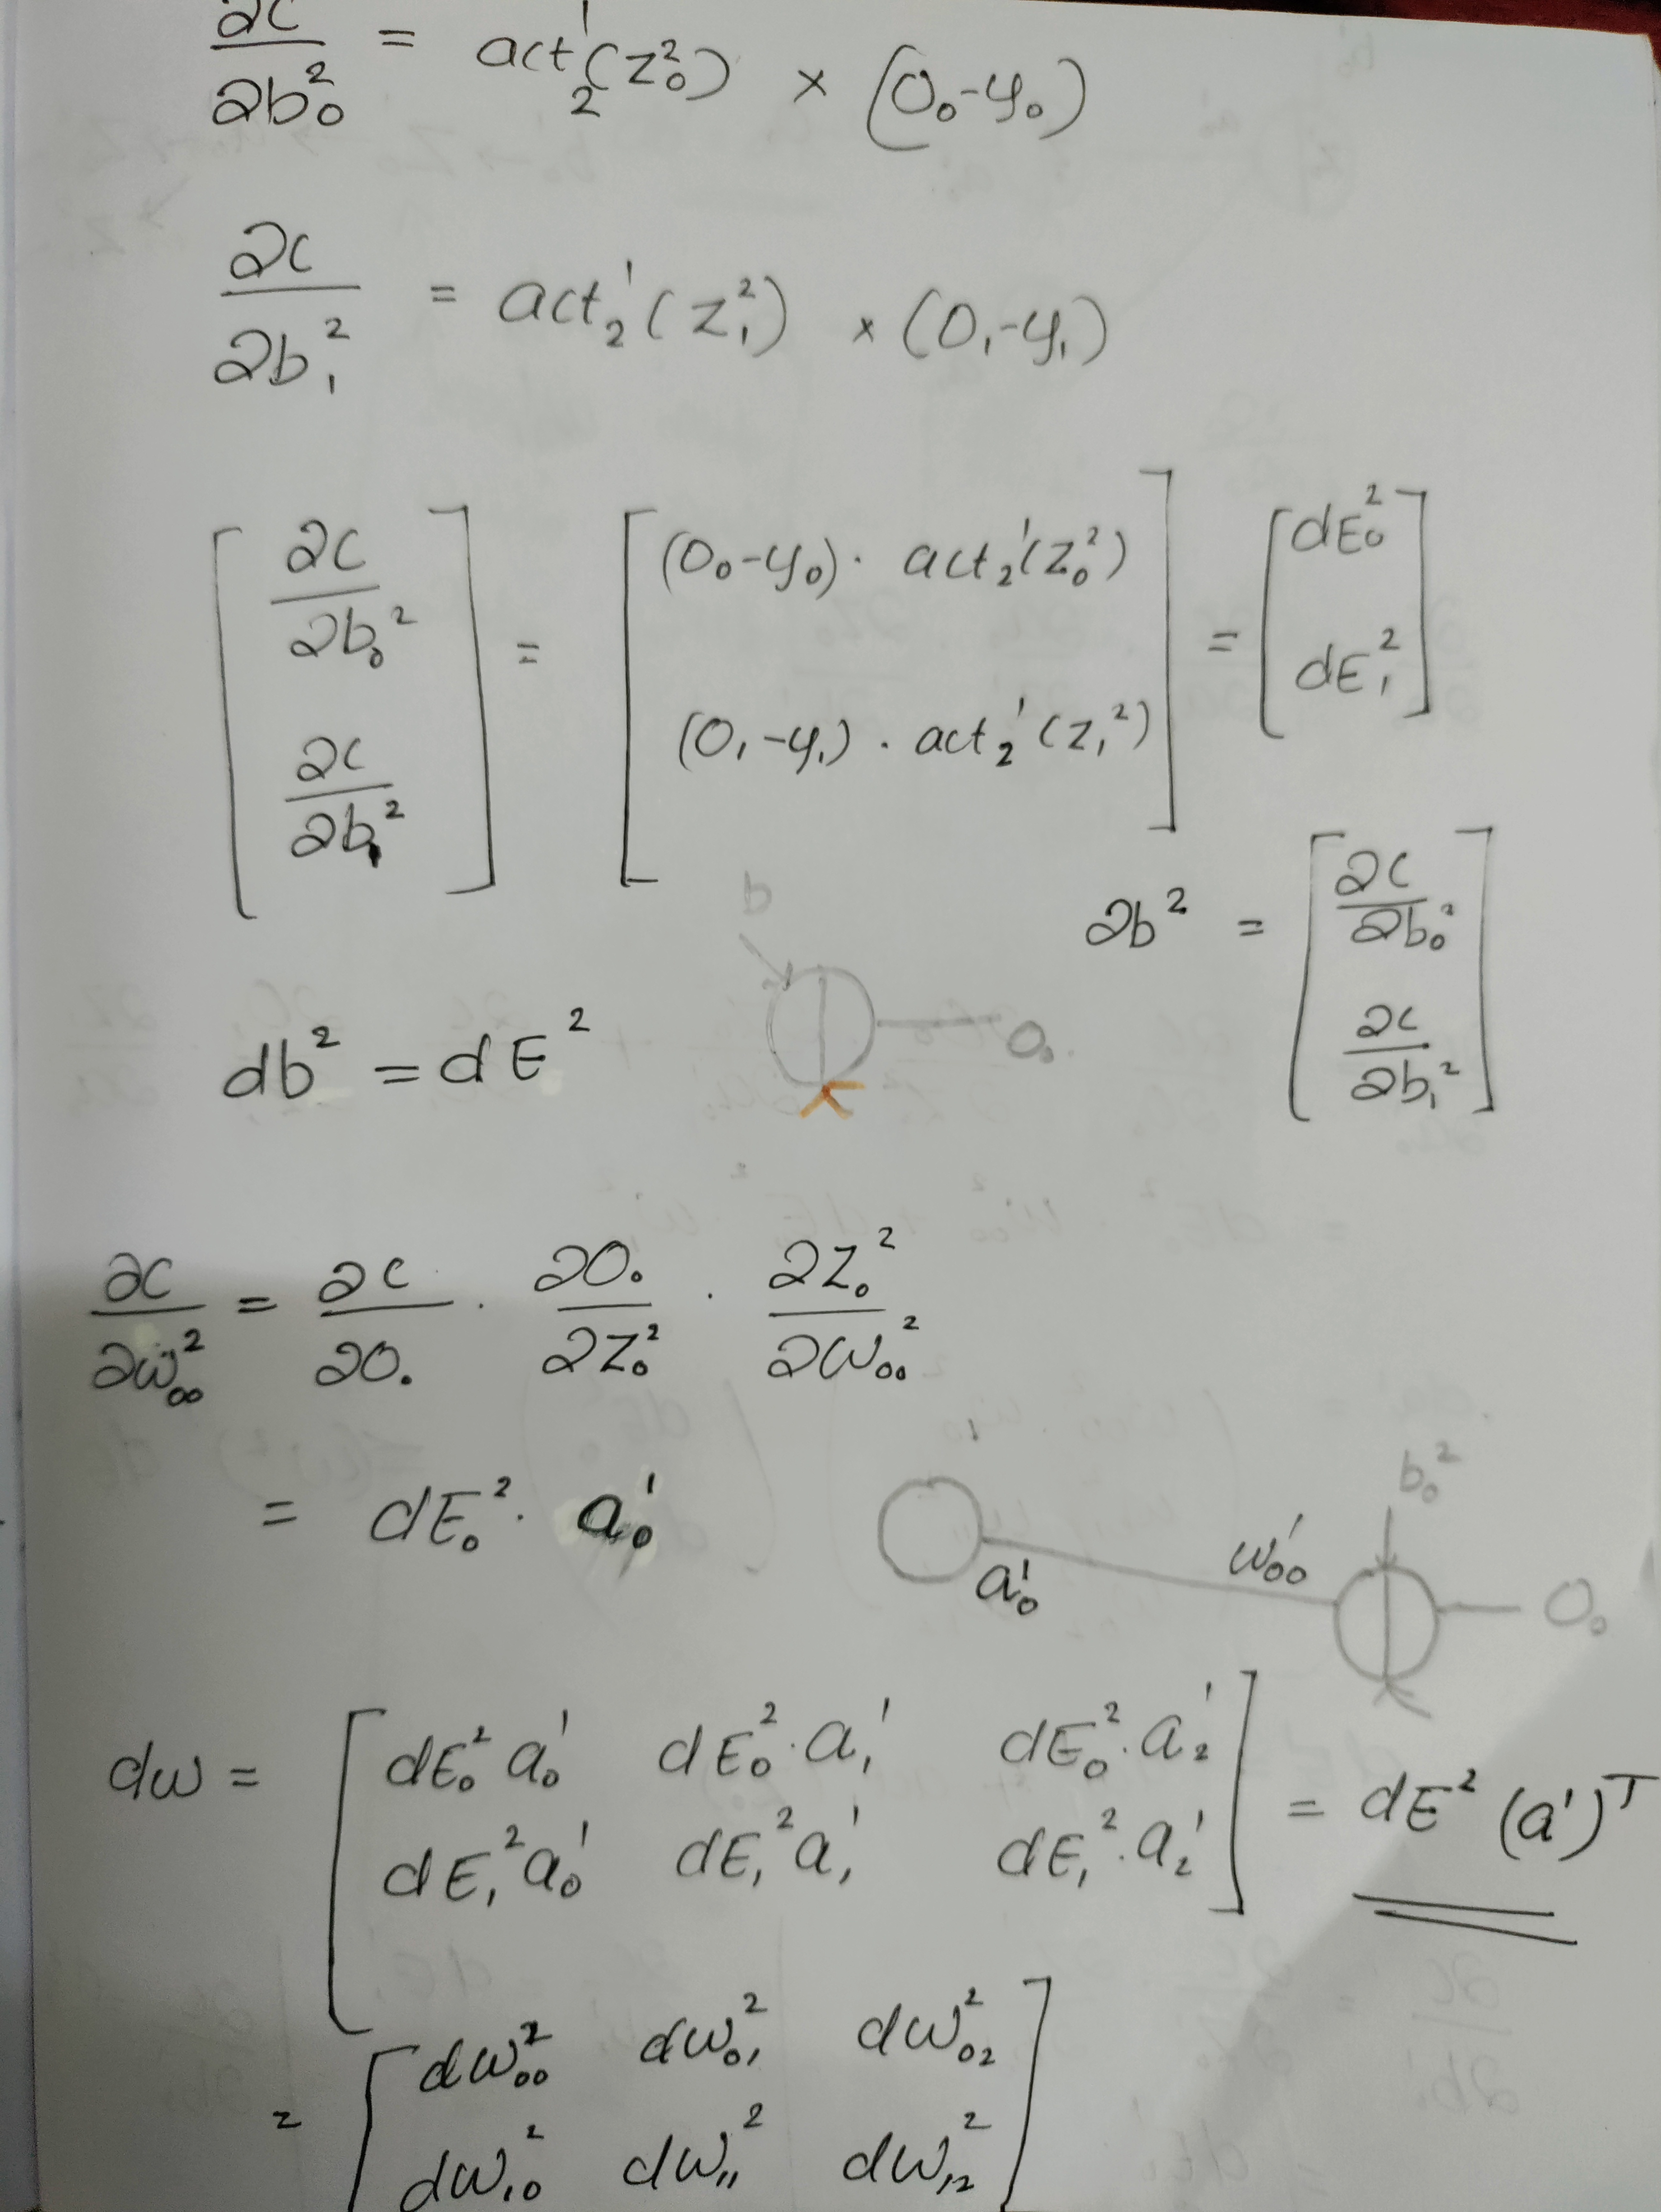 ∂c/∂b₀² = act₂'(z₀²) × (O₀-y₀)
∂c/∂b₁² = act₂'(z₁²) × (O₁-y₁)
[∂c/∂b₀² ; ∂c/∂b₁²] = [(O₀-y₀) · act₂'(z₀²) ; (O₁-y₁) · act₂'(z₁²)] = [dE₀² ; dE₁²]
∂b² = [∂c/∂b₀² ; ∂c/∂b₁²]
b
db² = dE²
O₀
∂c/∂w₀₀² = ∂c/∂O₀ · ∂O₀/∂z₀² · ∂z₀²/∂w₀₀²
= dE₀² · a₀¹
b₀²
a₀¹
w₀₀¹
O₀
dw = [dE₀² a₀¹ dE₀² · a₁¹ dE₀² · a₂¹ ; dE₁² a₀¹ dE₁² a₁¹ dE₁² · a₂¹] = dE² (a¹)ᵀ
= [dw₀₀² dw₀₁² dw₀₂² ; dw₁₀² dw₁₁² dw₁₂²]